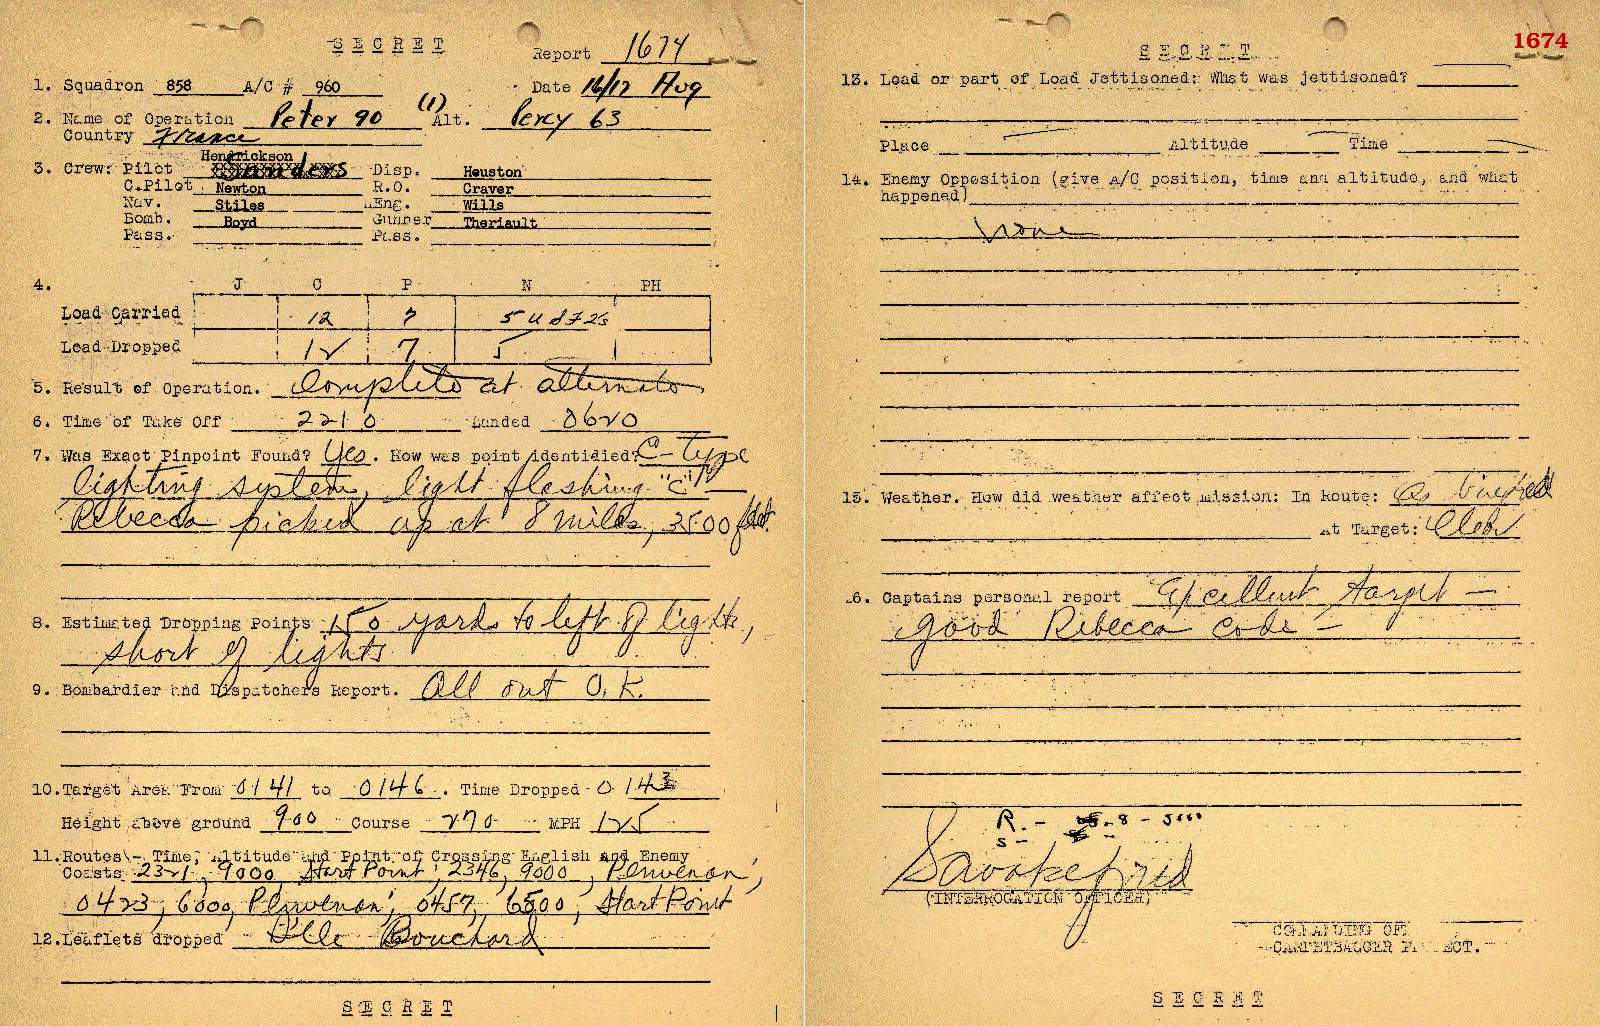 S E C R E T
Report 1674
1. Squadron 858 A/C # 960
Date 16/17 Aug
2. Name of Operation Peter 90 (1) Alt. Percy 63
Country France
Hendrickson
3. Crew: Pilot Sanders Disp. Heuston
C.Pilot Newton R.O. Craver
Nav. Stiles Eng. Wills
Bomb. Boyd Gunner Theriault
Pass. Pass.
4. J C P N PH
Load Carried 12 7 5 U of 2s
Load Dropped 12 7 5
5. Result of Operation. Complete at alternate
6. Time of Take Off 2210 Landed 0620
7. Was Exact Pinpoint Found? Yes. How was point identidied? C-type
lighting system, light flashing "C" —
Rebecca picked up at 8 miles, 3500 feet.
8. Estimated Dropping Points 150 yards to left of lights,
short of lights
9. Bombardier and Dispatchers Report. All out O.K.
10. Target Area From 0141 to 0146. Time Dropped 0143
Height above ground 900 Course 270 MPH 125
11. Routes - Time, Altitude and Point of Crossing English and Enemy
Coasts 2321, 9000, Start Point; 2346, 9000, Plnvenan;
0423, 6000, Plnvenan; 0457, 6500, Start Point
12. Leaflets dropped Bouchard
S E C R E T
1674
S E C R E T
13. Load or part of Load Jettisoned: What was jettisoned?
Place Altitude Time
14. Enemy Opposition (give A/C position, time and altitude, and what
happened)
None
15. Weather. How did weather affect mission: In Route: As briefed
At Target: Clear
16. Captains personal report Excellent target —
good Rebecca code —
R. - 8 - 5000
S -
(INTERROGATION OFFICER)
COMMANDING OFF
CARPETBAGGER PROJECT.
S E C R E T